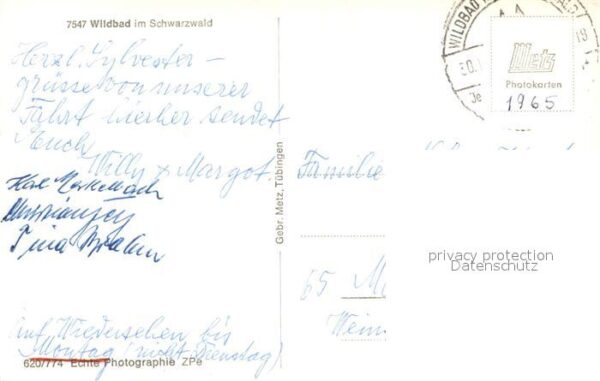 7547 Wildbad im Schwarzwald
Herzl. Sylvester-
grüsse von unserer
Fahrt hierher sendet
Euch
Willy & Margot.
Tina
Auf Wiedersehen bis
Montag (nicht Dienstag)
620/774 Echte Photographie ZPe
Gebr. Metz, Tübingen
WILDBAD
30.
19
Metz
Photokarten
1965
Familie
65 M
Wein
privacy protection
Datenschutz